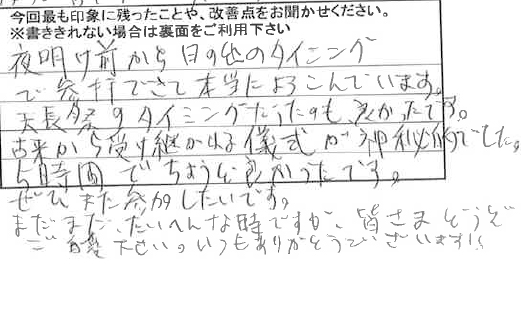 今回最も印象に残ったことや、改善点をお聞かせください。
※書ききれない場合は裏面をご利用下さい
夜明け前から日の出のタイミング
で参拝できて本当によろこんでいます。
天長祭のタイミングだったのも良かったです。
古来から受け継がれる儀式が神秘的でした。
5時間でちょうど良かったです。
ぜひまた参加したいです。
まだまだ、たいへんな時ですが、皆さまどうぞ
ご自愛下さい。いつもありがとうございます!!